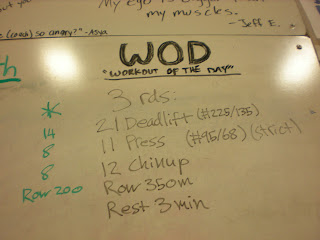 my muscles.
- Jeff E.
(coach) so angry?" -Asya
WOD
"WORKOUT OF THE DAY"
3 rds:
* 21 Deadlift (#225/135)
14 11 Press (#95/68) (strict)
8 12 Chinup
8 Row 350m
Row 200 Rest 3 min